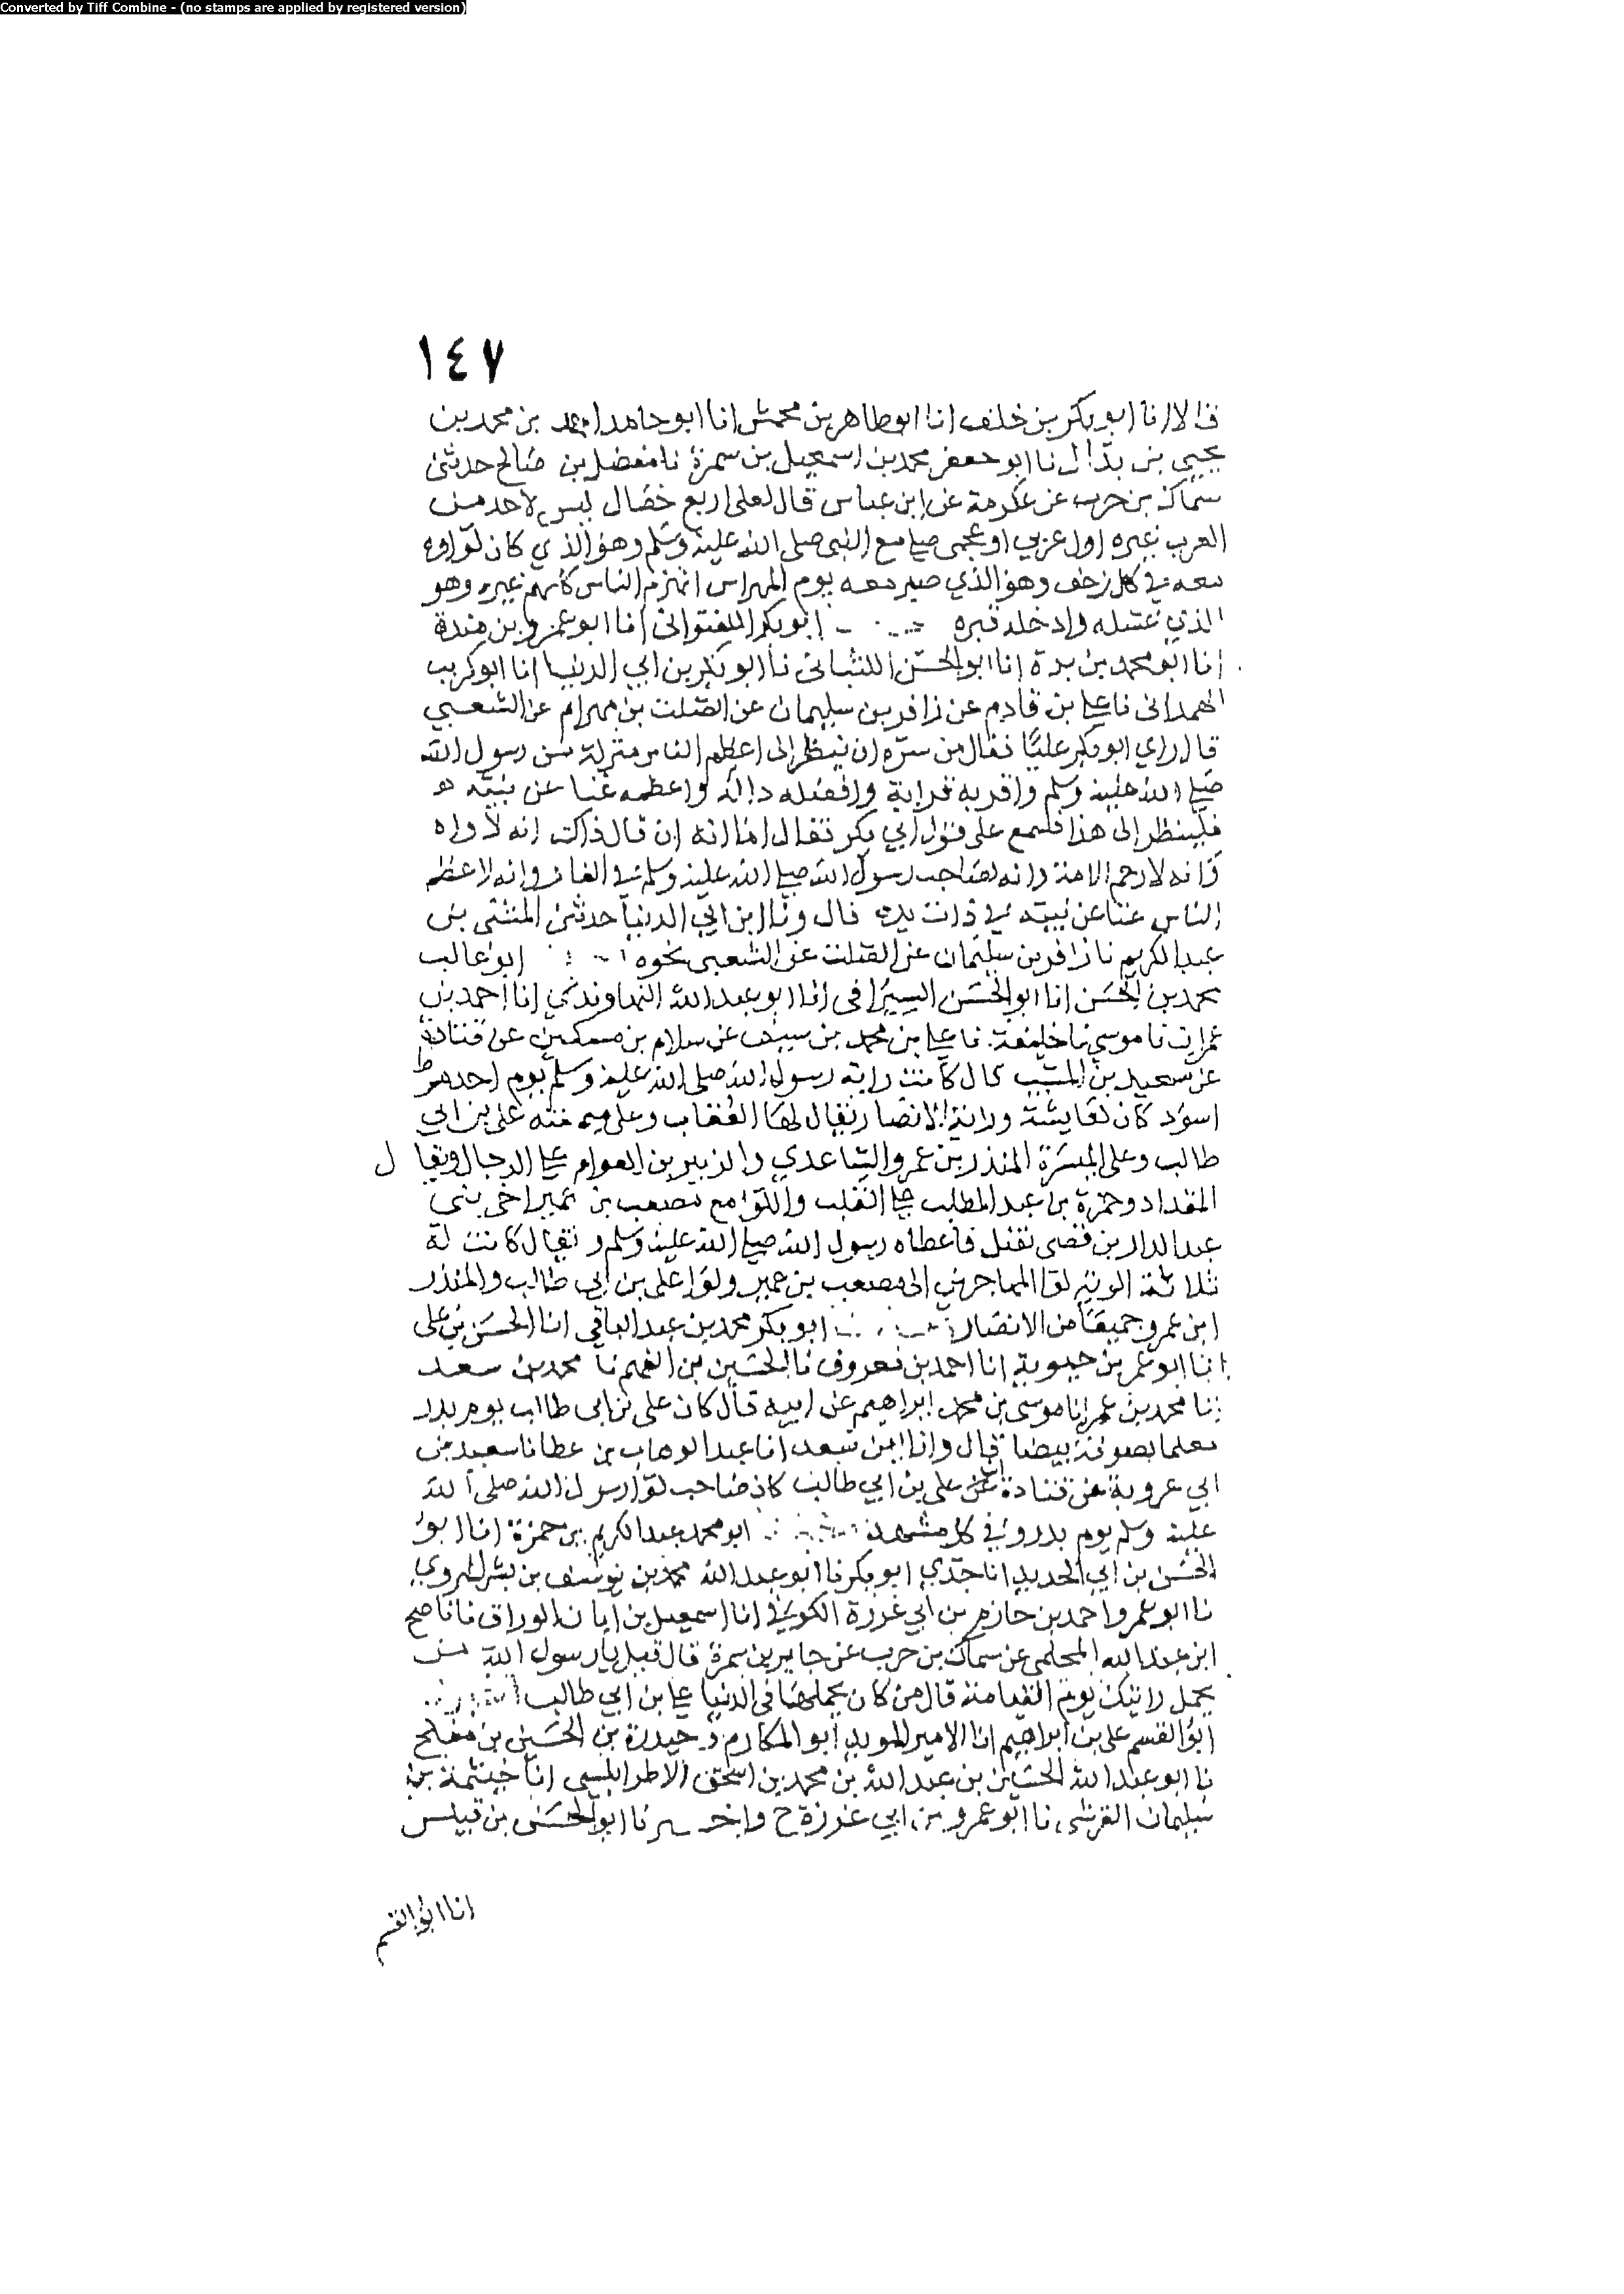 Converted by Tiff Combine - (no stamps are applied by registered version)
١٤٧
قالا انا ابو بكر بن خلف انا ابو طاهر بن محمش انا ابو حامد احمد بن محمد بن
يحيى بن بلال نا ابو جعفر محمد بن اسمعيل بن سمرة نا مفضل بن صالح حدثني
سماك بن حرب عن عكرمة عن ابن عباس قال لعلى اربع خصال ليس لاحد من
العرب غيره اول عربي او عجمى صلى مع النبى صلى الله عليه وسلم وهو الذي كان لواوه
معه في كل زحف وهو الذي صبر معه يوم المهراس انهزم الناس كلهم غيره وهو
الذي غسله وادخله قبره ابو بكر اللفتوانى انا ابو عمرو بن مندة
انا ابو محمد بن يوة انا ابو الحسن اللنبانى نا ابو بكر بن ابي الدنيا نا ابو كريب
الهمدانى نا علي بن قادم عن زافر بن سليمان عن الصلت بن بهرام عن الشعبي
قال راي ابو بكر عليا فقال من سره ان ينظر الى اعظم الناس منزلة من رسول الله
صلى الله عليه وسلم واقربه قرابة وافضله دالة واعظمه غنا عن نبيه
فلينظر الى هذا فسمع على قول ابي بكر فقال اما انه ان قال ذاك انه لاواه
وانه لارحم الامة وانه لصاحب رسول الله صلى الله عليه وسلم في الغار وانه لاعظم
الناس غنا عن نبيه في ذات يده قال ونا ابن ابي الدنيا حدثنى المثنى بن
عبد الكريم نا زافر بن سليمان عن الصلت عن الشعبى نحوه ابو غالب
محمد بن الحسن انا ابو الحسن السيرافى انا ابو عبد الله النهاوندي انا احمد بن
عمران نا موسى نا خليفة نا علي بن محمد بن سيف عن سلام بن مسكين عن قتادة
عن سعيد بن المسيب قال كانت راية رسول الله صلى الله عليه وسلم يوم احد مرط
اسود كان لعايشة وراية الانصار يقال لها العقاب وعلى ميمنته على بن ابي
طالب وعلى الميسرة المنذر بن عمرو الساعدي والزبير بن العوام على الرجال ويقال
المقداد وحمزة بن عبد المطلب على القلب واللوا مع مصعب بن عمير اخى بنى
عبد الدار بن قصى فقتل فاعطاه رسول الله صلى الله عليه وسلم ويقال كانت له
ثلاثة الوية لوا المهاجرين الى مصعب بن عمير ولوا على بن ابي طالب والمنذر
ابن عمرو جميعا من الانصار ابو بكر محمد بن عبد الباقى انا الحسن بن على
انا ابو عمر بن حيوية انا احمد بن معروف نا الحسين بن الفهم نا محمد بن سعد
انا محمد بن عمر نا موسى بن محمد ابراهيم عن ابيه قال كان على بن ابى طالب يوم بدر
معلما بصوفة بيضا قال وانا ابن سعد انا عبد الوهاب بن عطا نا سعيد بن
ابي عروبة عن قتادة ان على بن ابي طالب كان صاحب لوا رسول الله صلى الله
عليه وسلم يوم بدر وفي كل مشهد ابو محمد عبد الكريم بن حمزة انا ابو
الحسن بن ابي الحديد انا جدي ابو بكر نا ابو عبد الله محمد بن يوسف بن بشر الهروي
نا ابو عمرو احمد بن حازم بن ابي غرزة الكوفي انا اسمعيل بن ابان الوراق نا ناصح
ابن عبد الله المحلمى عن سماك بن حرب عن جابر بن سمرة قال قيل يا رسول الله من
يحمل رايتك يوم القيامة قال من كان يحملها في الدنيا علي بن ابي طالب
ابو القسم على بن ابراهيم انا الامير المويد ابو المكارم حيدرة بن الحسين بن مفلح
نا ابو عبد الله الحسين بن عبد الله بن محمد بن اسحق الاطرابلسى انا خيثمة بن
سليمان القرشى نا ابو عمرو بن ابي غرزة ح واخبرنا ابو الحسن بن قبيس
انا ابو القسم